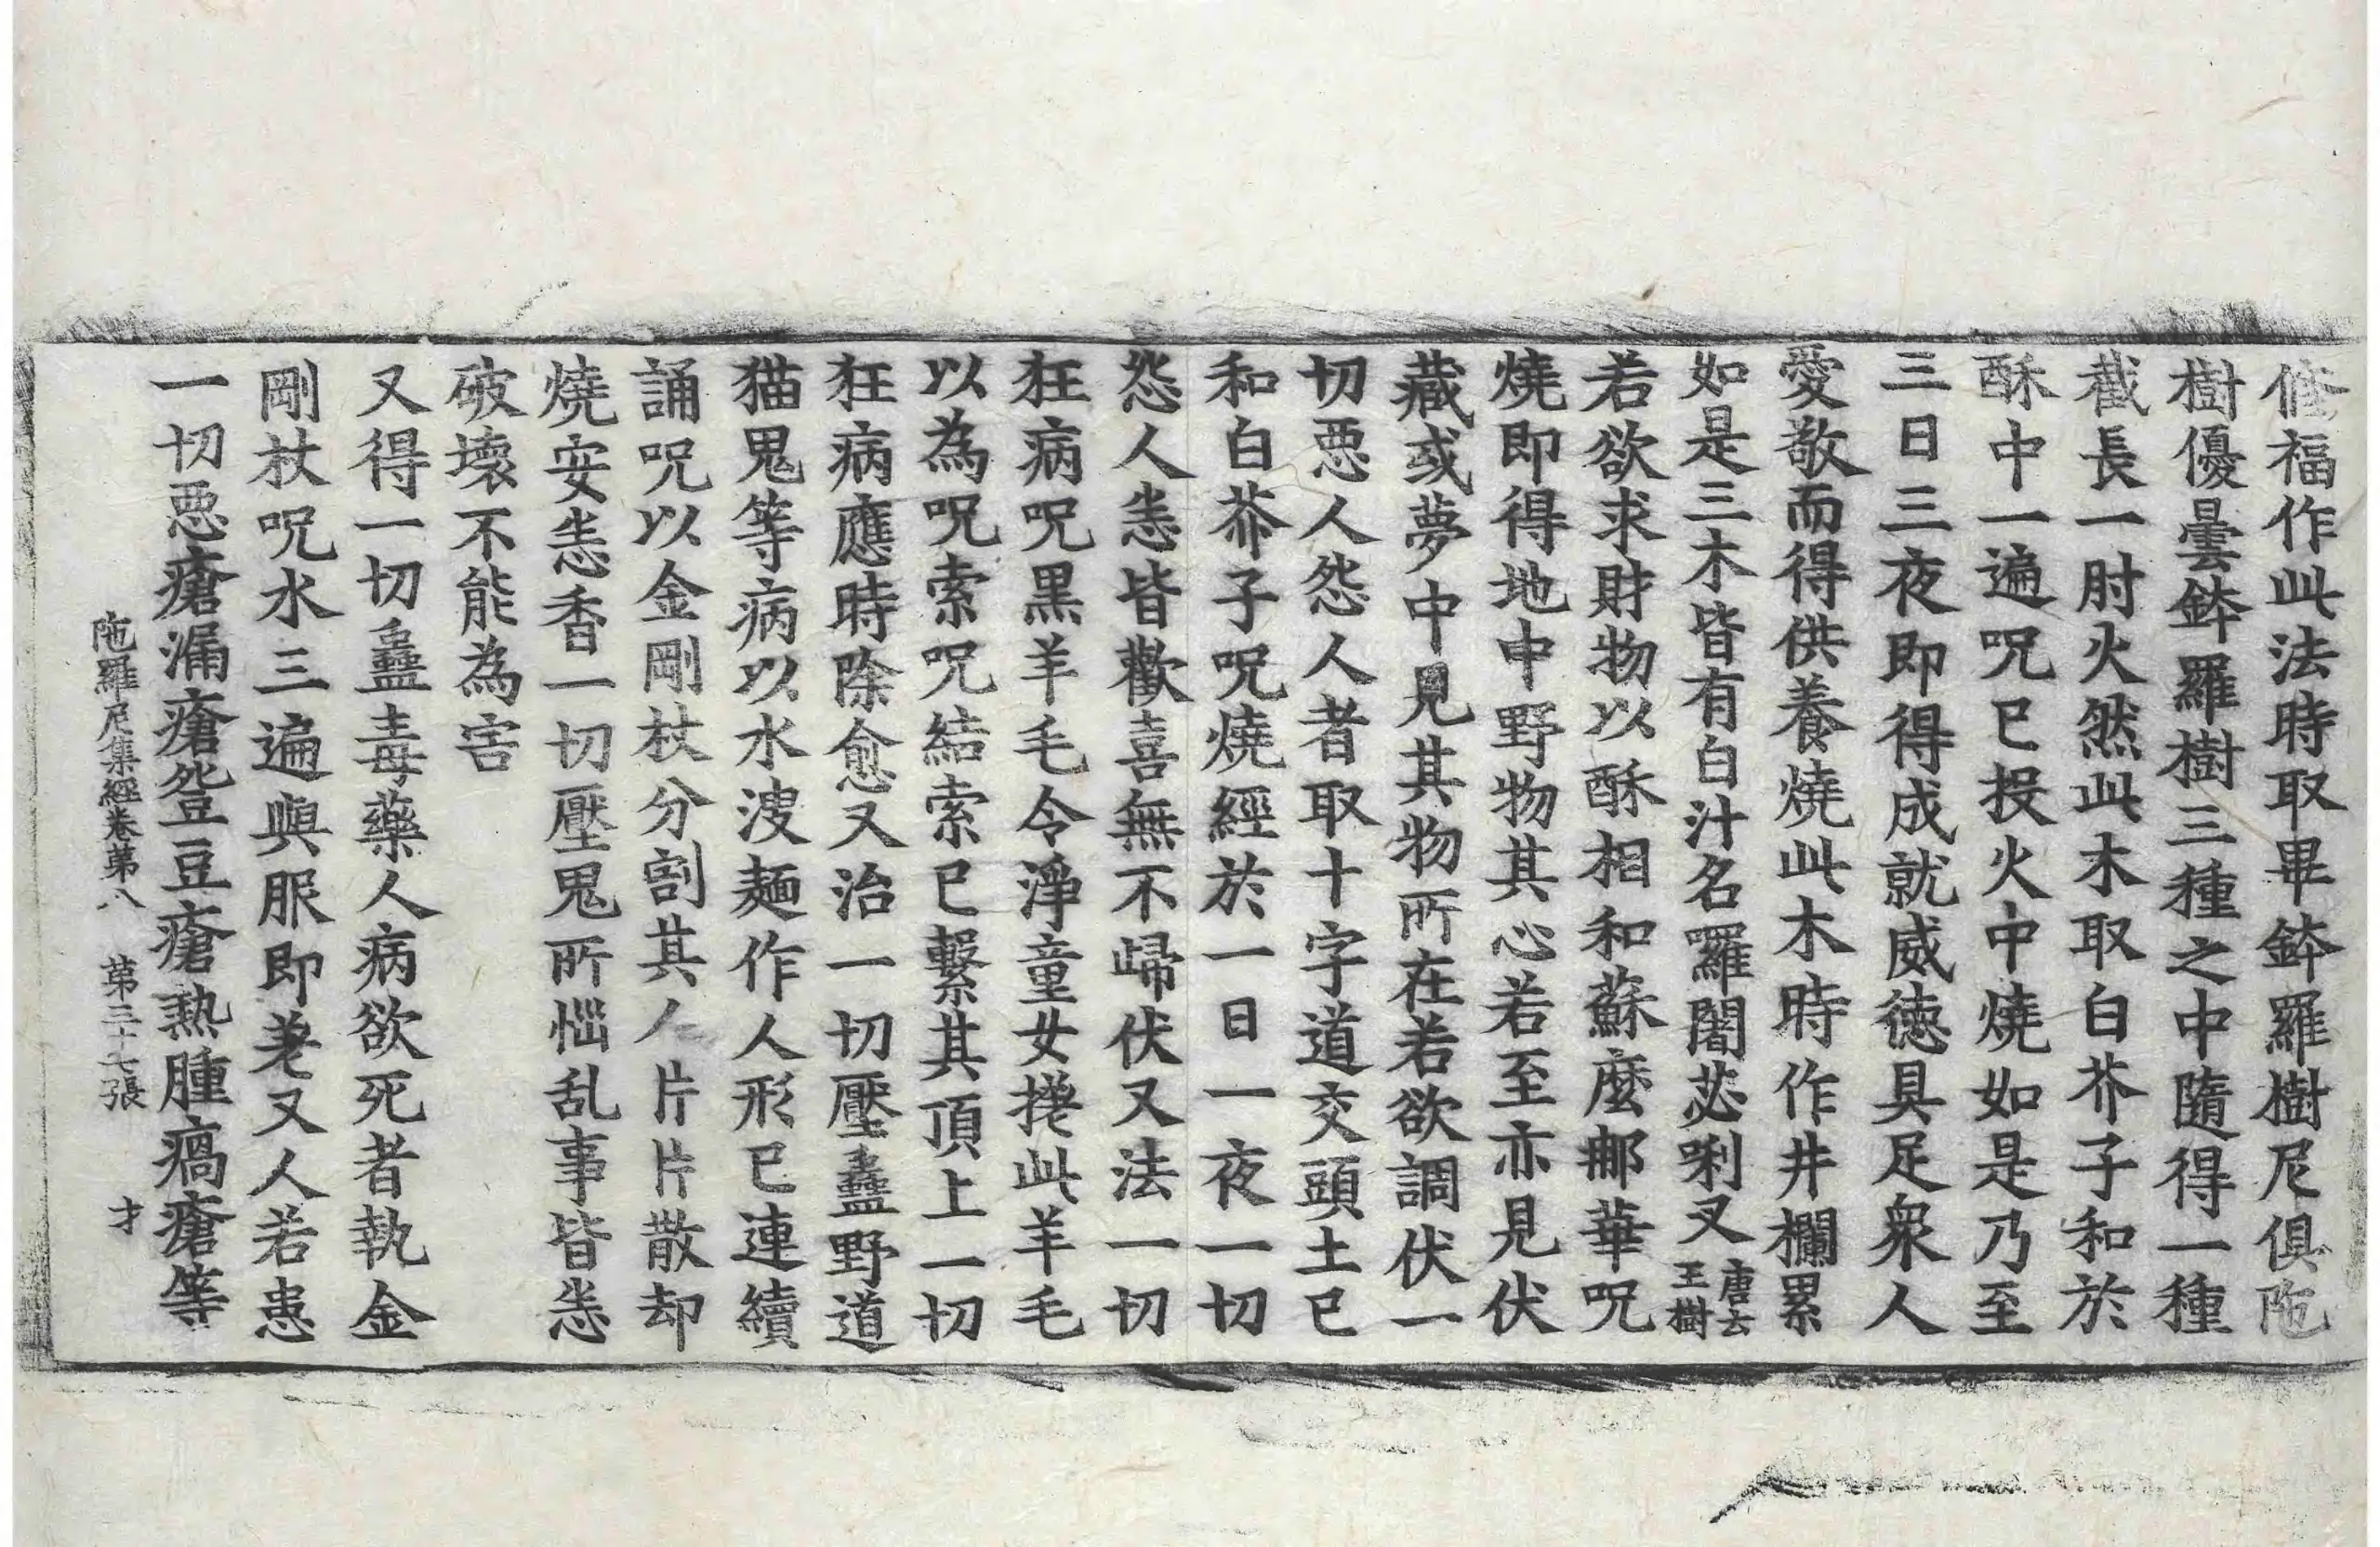 修福作此法時取畢鉢羅樹尼俱陁
樹優曇鉢羅樹三種之中隨得一種
截長一肘火然此木取白芥子和於
酥中一遍呪已投火中燒如是乃至
三日三夜即得成就威德具足衆人
愛敬而得供養燒此木時作井欄累
如是三木皆有白汁名囉闍苾唎叉唐云王樹
若欲求財物以酥相和蘇麼那華呪
燒即得地中野物其心若至亦見伏
藏或夢中見其物所在若欲調伏一
切惡人怨人者取十字道交頭土已
和白芥子呪燒經於一日一夜一切
怨人恙皆歡喜無不歸伏又法一切
狂病呪黒羊毛令淨童女搓此羊毛
以為呪索呪結索已繫其頂上一切
狂病應時除愈又治一切壓蠱野道
猫鬼等病以水溲麺作人形已連續
誦呪以金剛杖分割其人片片散却
燒安悉香一切壓鬼所惱乱事皆悉
破壞不能為害
又得一切蠱毒藥人病欲死者執金
剛杖呪水三遍與服即差又人若患
一切惡瘡漏瘡豋豆瘡熱腫瘑瘡等
陁羅尼集經卷第八　第三十七張　才